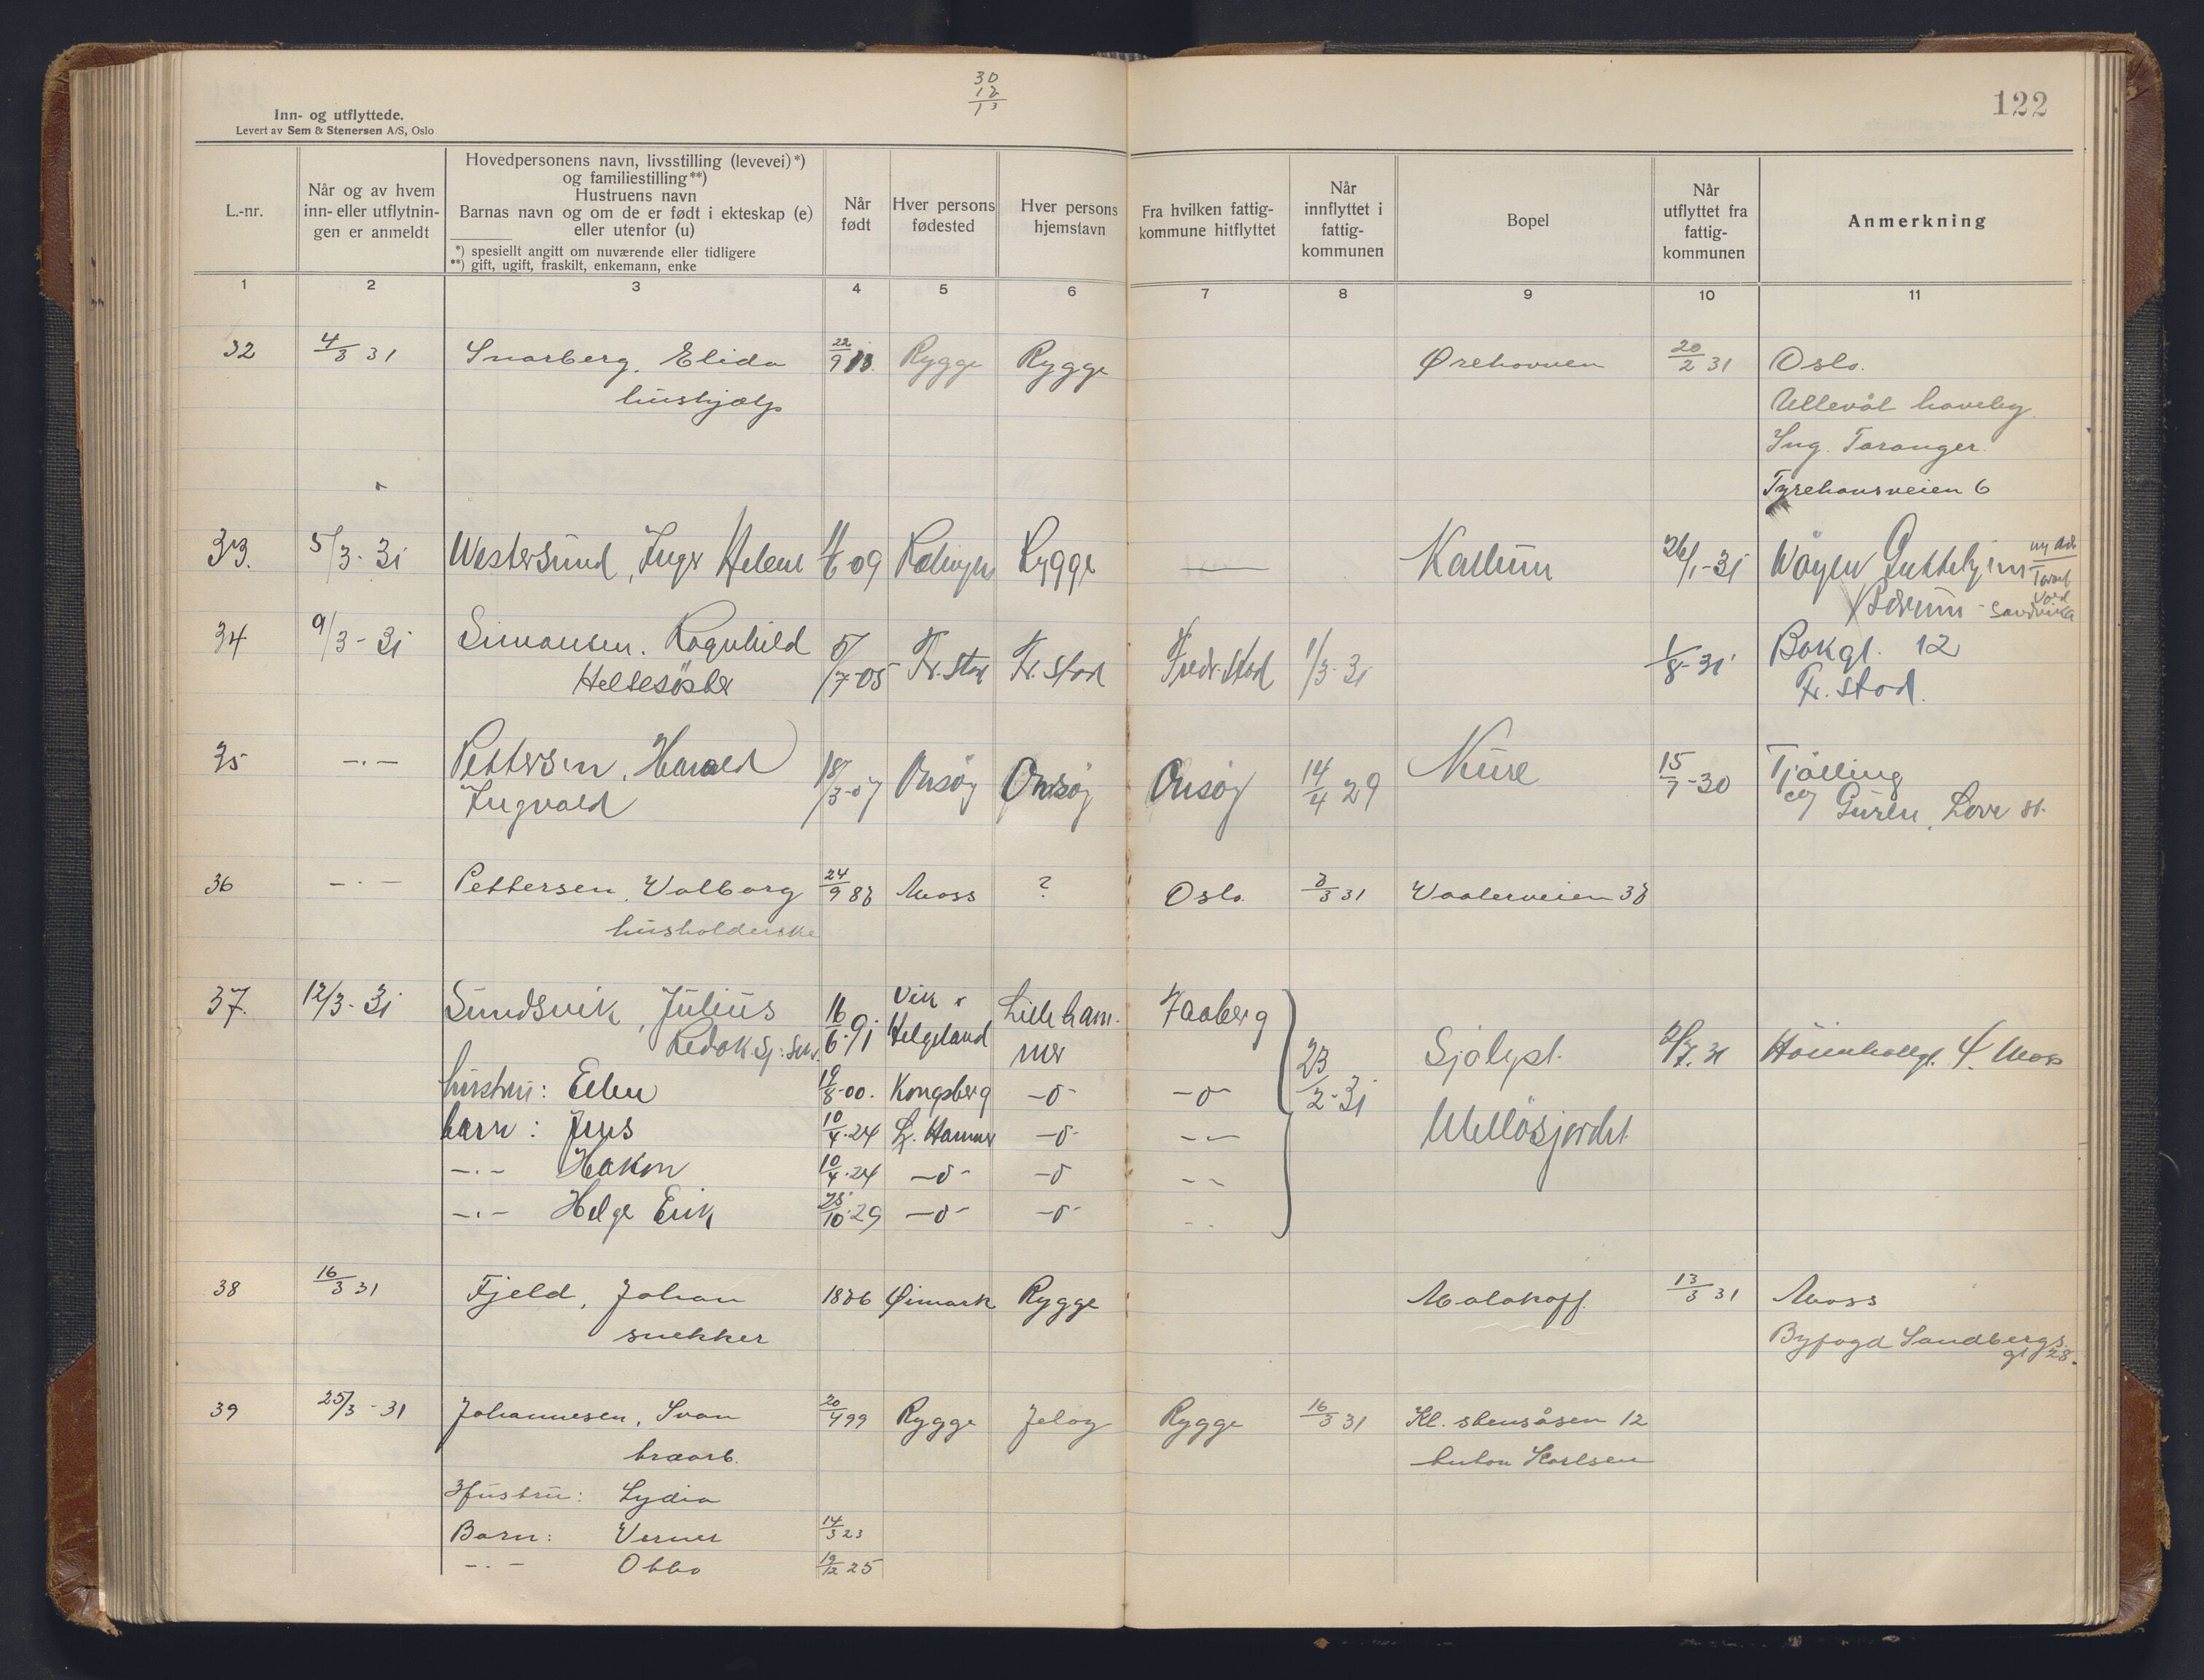 30
12
13
122
Inn- og utflyttede.
Levert av Sem & Stenersen A/S, Oslo
L.-nr.
Når og av hvem
inn- eller utflytnin-
gen er anmeldt
Hovedpersonens navn, livsstilling (levevei)*)
og familiestilling**)
Hustruens navn
Barnas navn og om de er født i ekteskap (e)
eller utenfor (u)
*) spesiellt angitt om nuværende eller tidligere
**) gift, ugift, fraskilt, enkemann, enke
Når
født
Hver persons
fødested
Hver persons
hjemstavn
Fra hvilken fattig-
kommune hitflyttet
Når
innflyttet i
fattig-
kommunen
Bopel
Når
utflyttet fra
fattig-
kommunen
Anmerkning
1 2 3 4 5 6 7 8 9 10 11
32 4/3 31 Snarberg, Elida 22/9 13. Rygge Rygge Ørehovuen 20/2 31 Oslo.
hushjælp Ullevål haveby.
Ing. Taranger.
Tyrehansveien 6
33. 5/3-31 Westersund, Inger Helene 09 Rygge — Kallum 26/1-31 ny adr
Bærum - Sandvika
34 9/3-31 Simonsen. Ragnhild 5/7-05 Fr.stad Fr.stad Fredr.stad 1/3-31 1/8-31 Bakgt. 12
Helsesöster Fr.stad.
35 -.- Pettersen, Harald 18/3-07 Onsöy Onsöy Onsöy 14/4 29 Kure 15/7-30 Tjölling
Ingvald Guren, Love st.
36 -.- Pettersen, Valborg 24/9 88 Moss ? Oslo. 8/3 31 Vaalerveien 38
husholderske
37. 12/3-31 Sundsvik, Julius 16/6-91 Vik i Helgeland Lillehammer Faaberg 23/2-31 Sjölyst. 31 4. Moss
Redaksj: sekr.
hustru: Ellen 19/8-00. Kongsberg -o- -o- Melløsjordet
barn: Jens 10/4-24 L. Hammer -o- -
-.- Hakon 10/4-24 -o- -o- --
-.- Helge Erik 25/10-29 -o- -o- --
38 16/3 31 Fjeld, Johan 1886 Øimark Rygge Malakoff. 13/3 31 Moss
snekker Byfogd Sandbergs
gt 28.
39 25/3-31 Johannesen, Svan 20/4 99 Rygge Jeløy Rygge 16/3 31 Kl. stensåsen 12
Anton Karlsen
Hustru: Lydia
Barn: Verner 14/3 23
-.- Otto 19/12 25